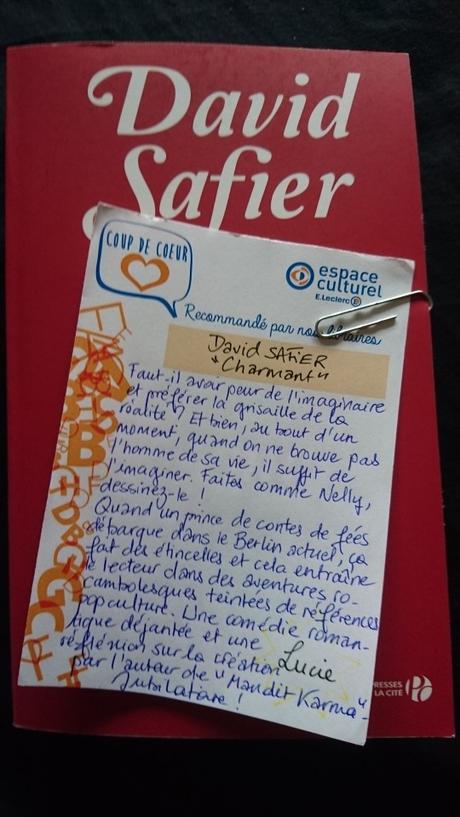 David
Safier
COUP DE COEUR
espace
culturel
E.Leclerc
Recommandé par nos libraires
David SAFIER
"Charmant"
Faut-il avoir peur de l'imaginaire
et préférer la grisaille de la
réalité ? Et bien, au bout d'un
moment, quand on ne trouve pas
l'homme de sa vie, il suffit de
l'imaginer. Faites comme Nelly,
dessinez-le !
Quand un prince de contes de fées
débarque dans le Berlin actuel, ça
fait des étincelles et cela entraîne
le lecteur dans des aventures ro-
cambolesques teintées de références
pop culture. Une comédie roman-
tique déjantée et une
réflexion sur la création
Lucie
par l'auteur de "Maudit Karma".
Jubilatoire !
PRESSES
LA CITÉ